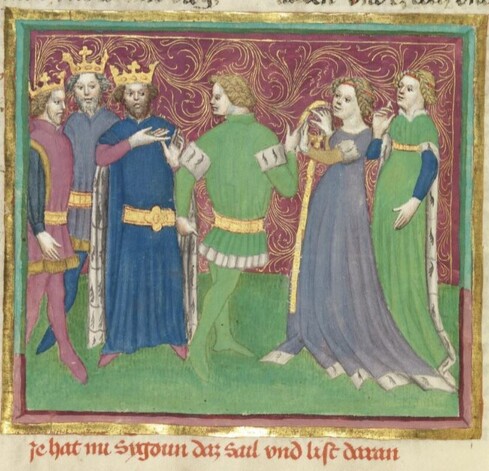 Je hat nu Sygoun daz sail vnd list daran